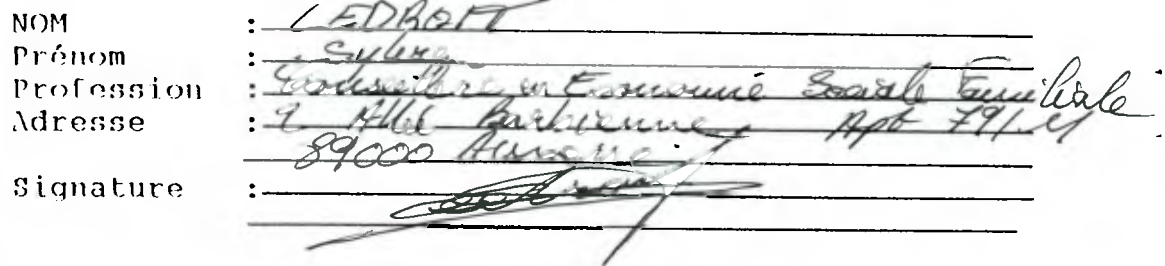 NOM : LEDROIT
Prénom : Sylvie
Profession : Conseillère en Economie Sociale Familiale
Adresse : 2 Allée Apt 791.M
89000 Auxerre
Signature :